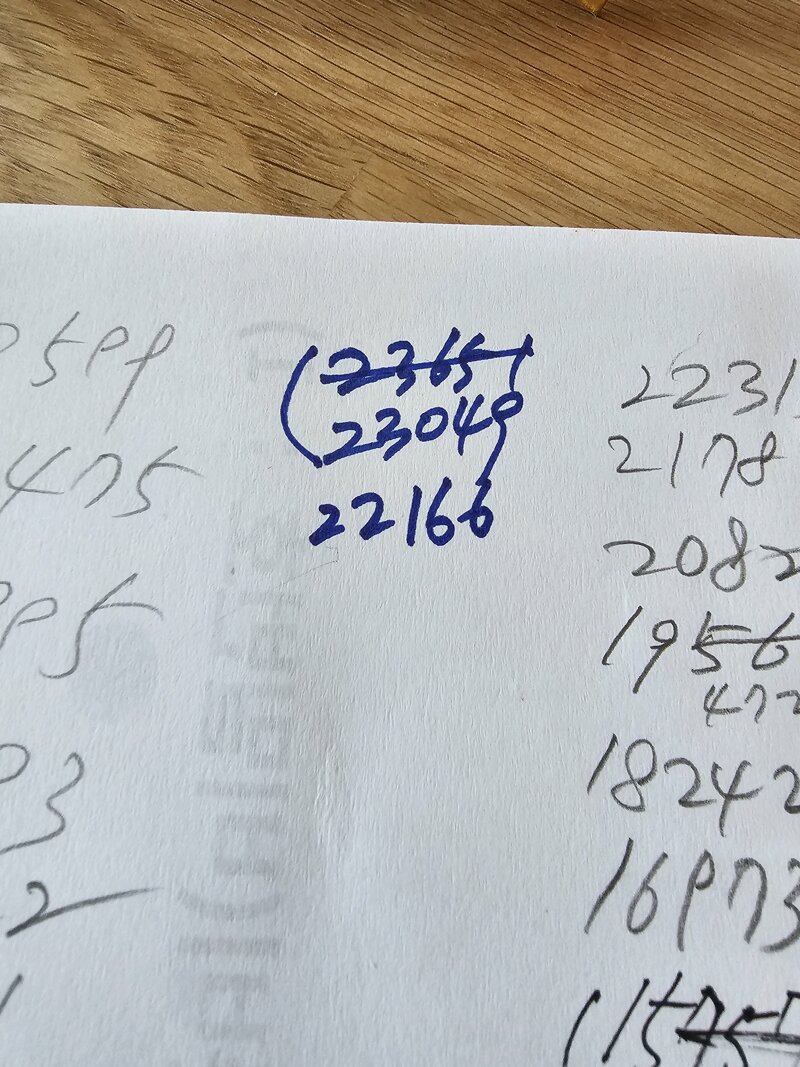 599
475
95
93
2
2365
23049
22166
2231
2178
2082
1956
472
18242
16973
(1575